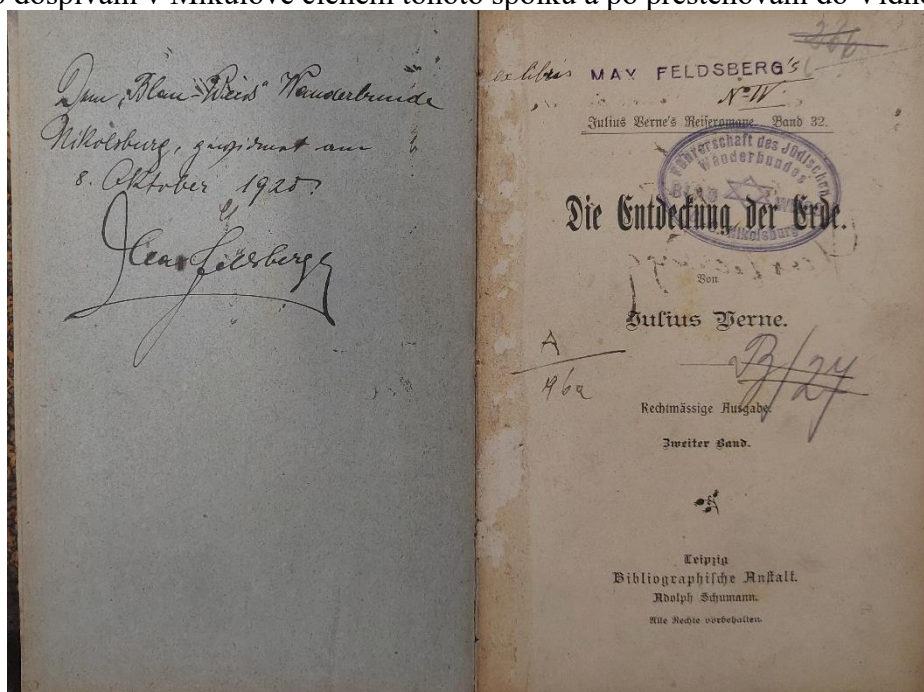 dospívání v Mikulově členem tohoto spolku a po přestěhování do Vídn
Dem "Blau-Weiss" Wanderbunde
Nikolsburg, gewidmet am
8. Oktober 1920
Max Feldsberg
366
exlibris MAX FELDSBERG's
No IV.
Julius Verne's Reiseromane. Band 32.
Führerschaft des Jüdischen
Wanderbundes
BLAU WEISS
Nikolsburg
Die Entdeckung der Erde.
Von
Julius Verne.
A
196a
B/27
Rechtmässige Ausgabe.
Zweiter Band.
Leipzig
Bibliographische Anstalt.
Adolph Schumann.
Alle Rechte vorbehalten.